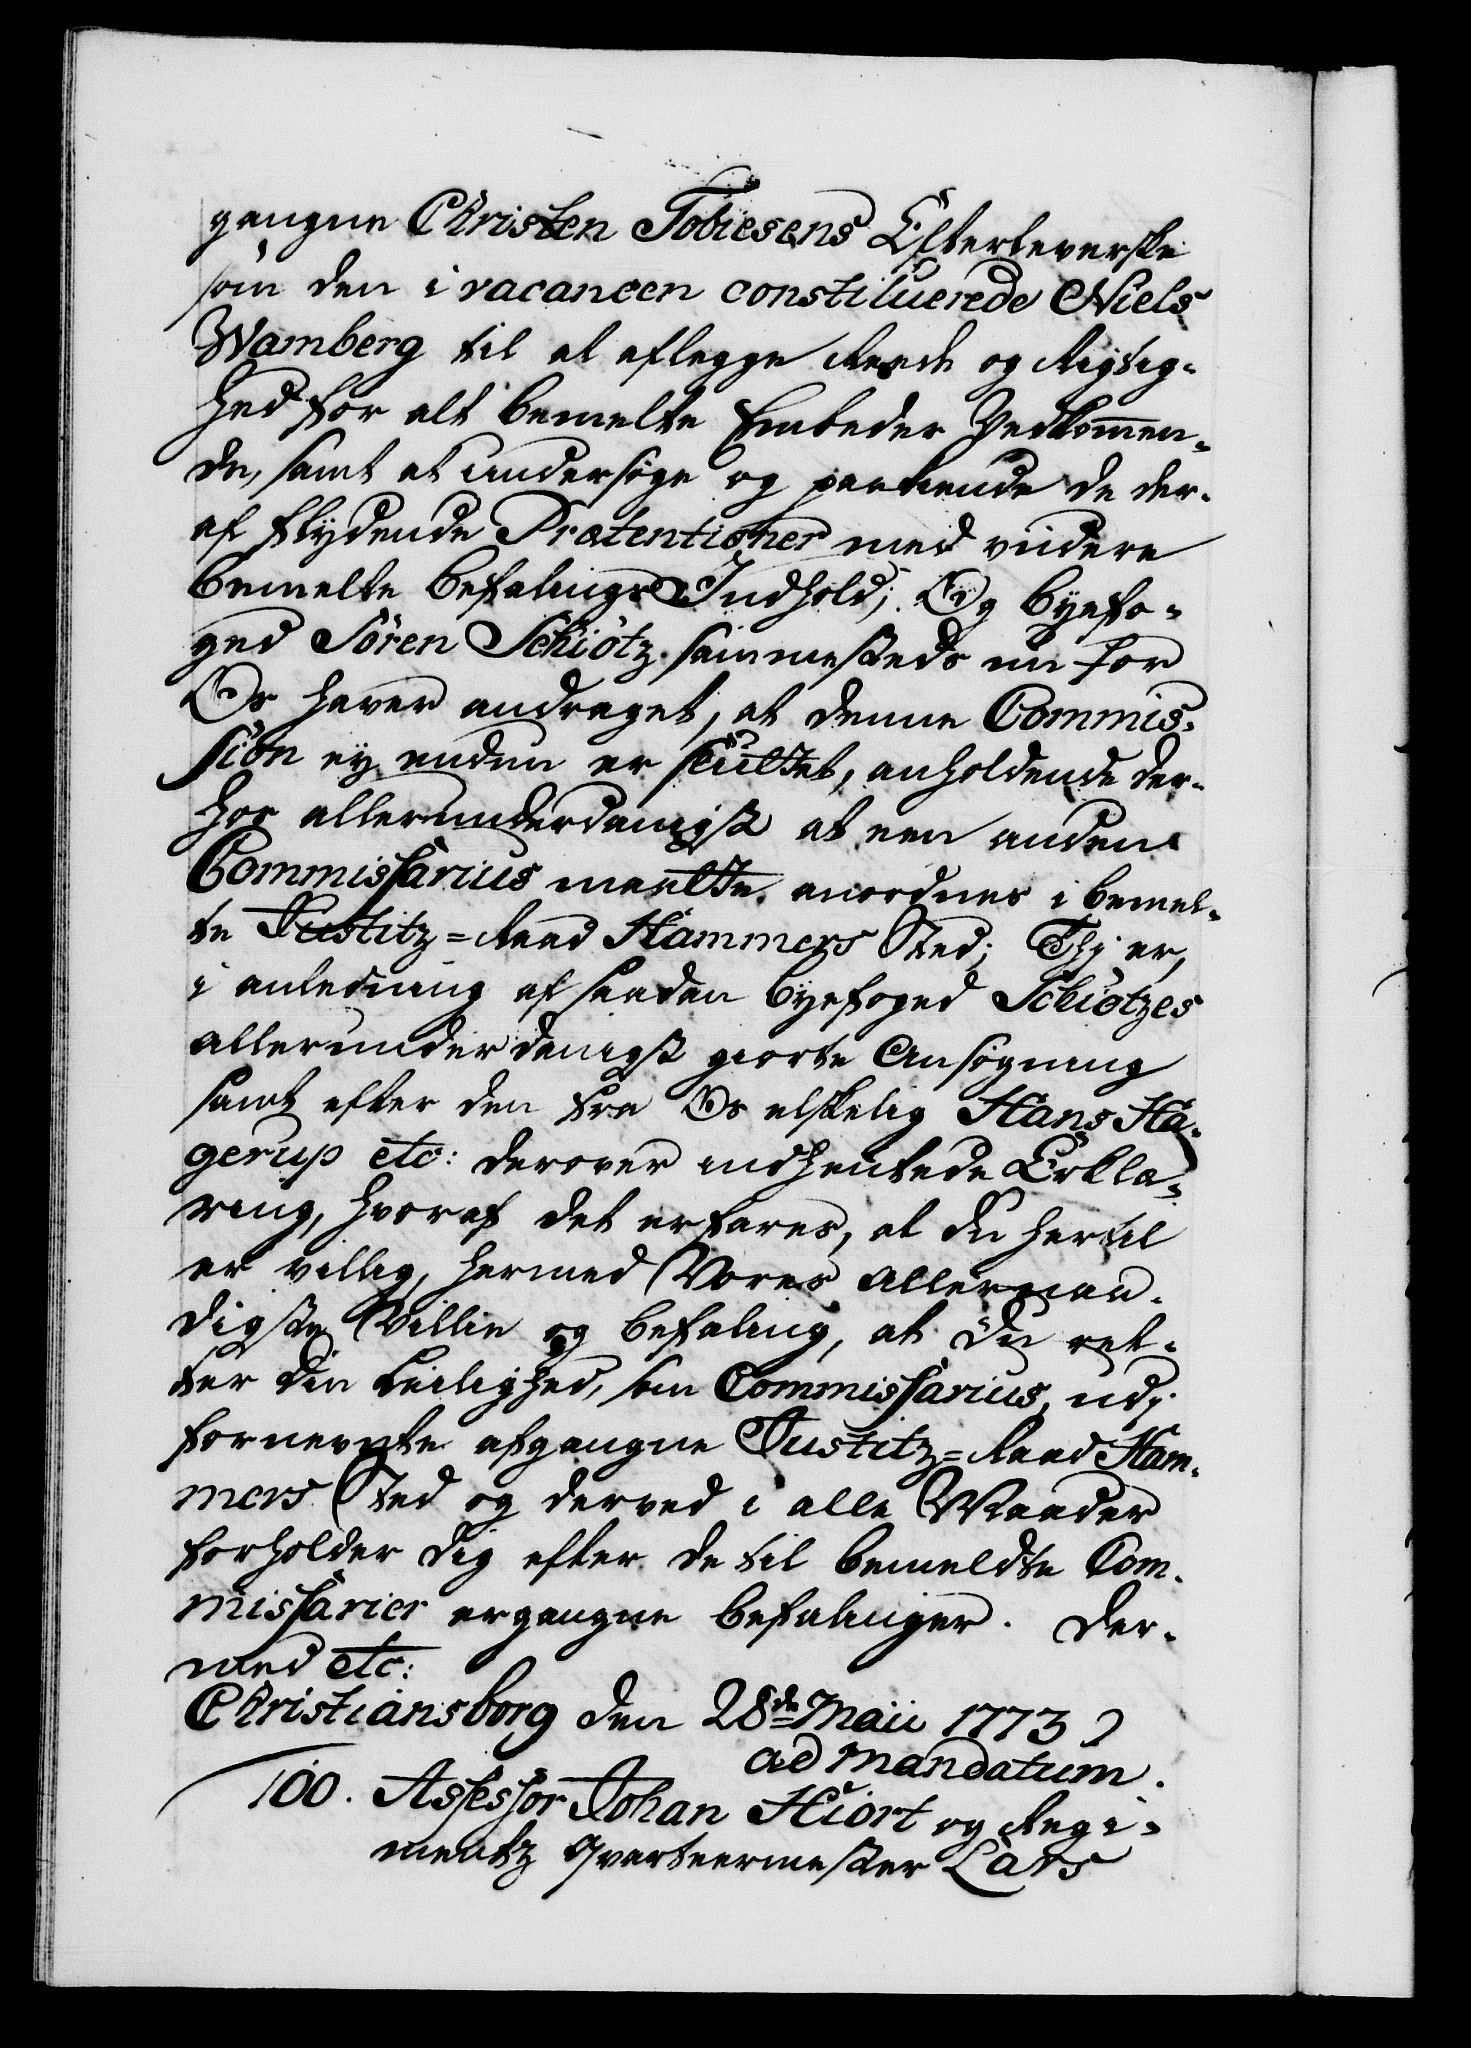 gangne Christen Tobiesens Efterleverske
som den i vacancen constituerede Niels
Wamberg til at aflegge Reede og Rigtig-
hed for alt bemelte Embeder Vedkommen-
de, samt at undersøge og paakiende de der-
af flydende Prætentioner med videre
bemelte Befalings Indhold; Og Byefo-
ged Sören Schiötz sammesteds nu for
Os haver andraget, at denne Commis-
sion ey endnu er sluttet, anholdende der-
hos allerunderdanigst at een anden
Commissarius maatte anordnes i bemel-
te Justitz-Raad Hammers Sted; Thi er,
i anledning af saadan Byefoged Schiötzes
allerunderdanigst giorte Ansøgning
samt efter den fra Os elskelig Hans Ha-
gerup etc: derover indhentede Erklæ-
ring, hvoraf det erfares, at du hertil
er villig, hermed Vores allernaa-
digste Villie og Befaling, at du ret-
ter din Leilighed, som Commissarius, udj
fornevnte afgangne Justitz-Raad Ham-
mers Sted og derved i alle Maader
forholder dig efter de til bemeldte Com-
missarier ergangne Befalinger. Der-
med etc:
Christiansborg den 28de Maii 1773
ad mandatum.
100. Assessor Johan Hiort og Regi-
mentz Qvarteermester Lars